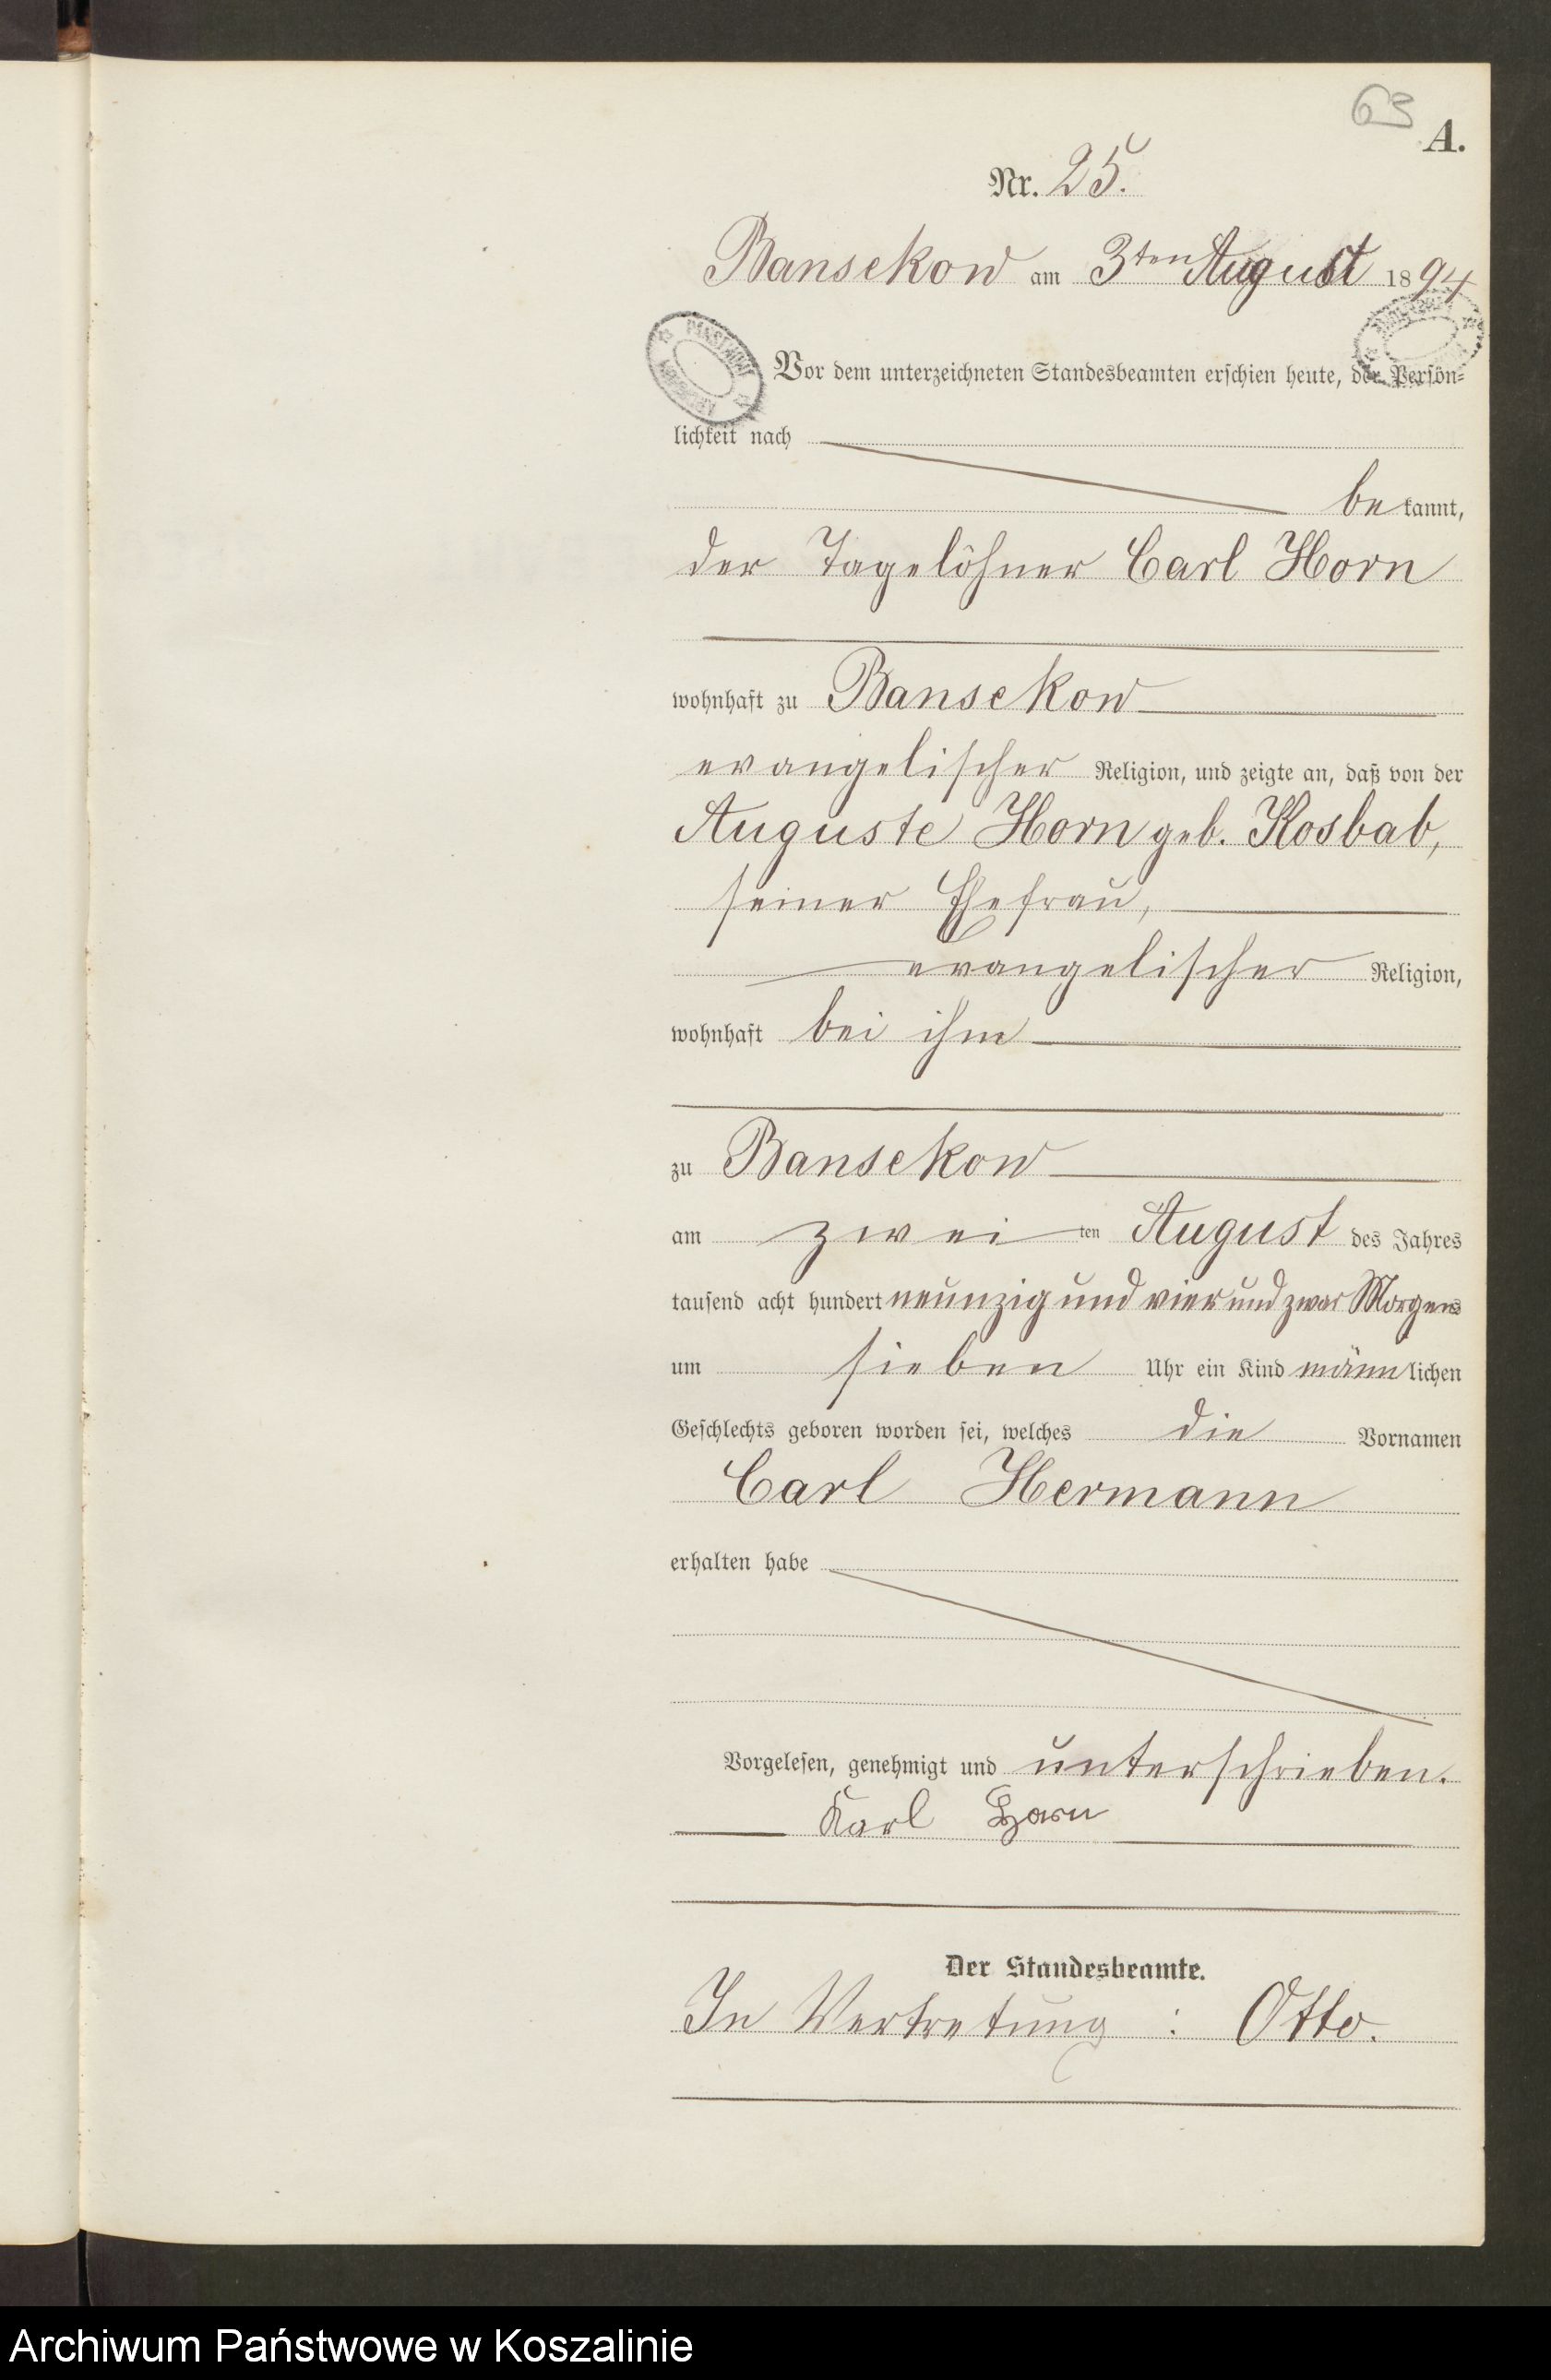 63
A.
Nr. 25.
Bansekow am 3ten August 1894
Vor dem unterzeichneten Standesbeamten erschien heute, der Persön-
lichkeit nach
bekannt,
der Tagelöhner Carl Horn
wohnhaft zu Bansekow
evangelischer Religion, und zeigte an, daß von der
Auguste Horn geb. Kosbab,
seiner Ehefrau,
evangelischer Religion,
wohnhaft bei ihm
zu Bansekow
am zweiten August des Jahres
tausend acht hundert neunzig und vier und zwar Morgens
um sieben Uhr ein Kind männlichen
Geschlechts geboren worden sei, welches die Vornamen
Carl Hermann
erhalten habe
Vorgelesen, genehmigt und unterschrieben.
Karl Horn
Der Standesbeamte.
In Vertretung : Otto.
Archiwum Państwowe w Koszalinie